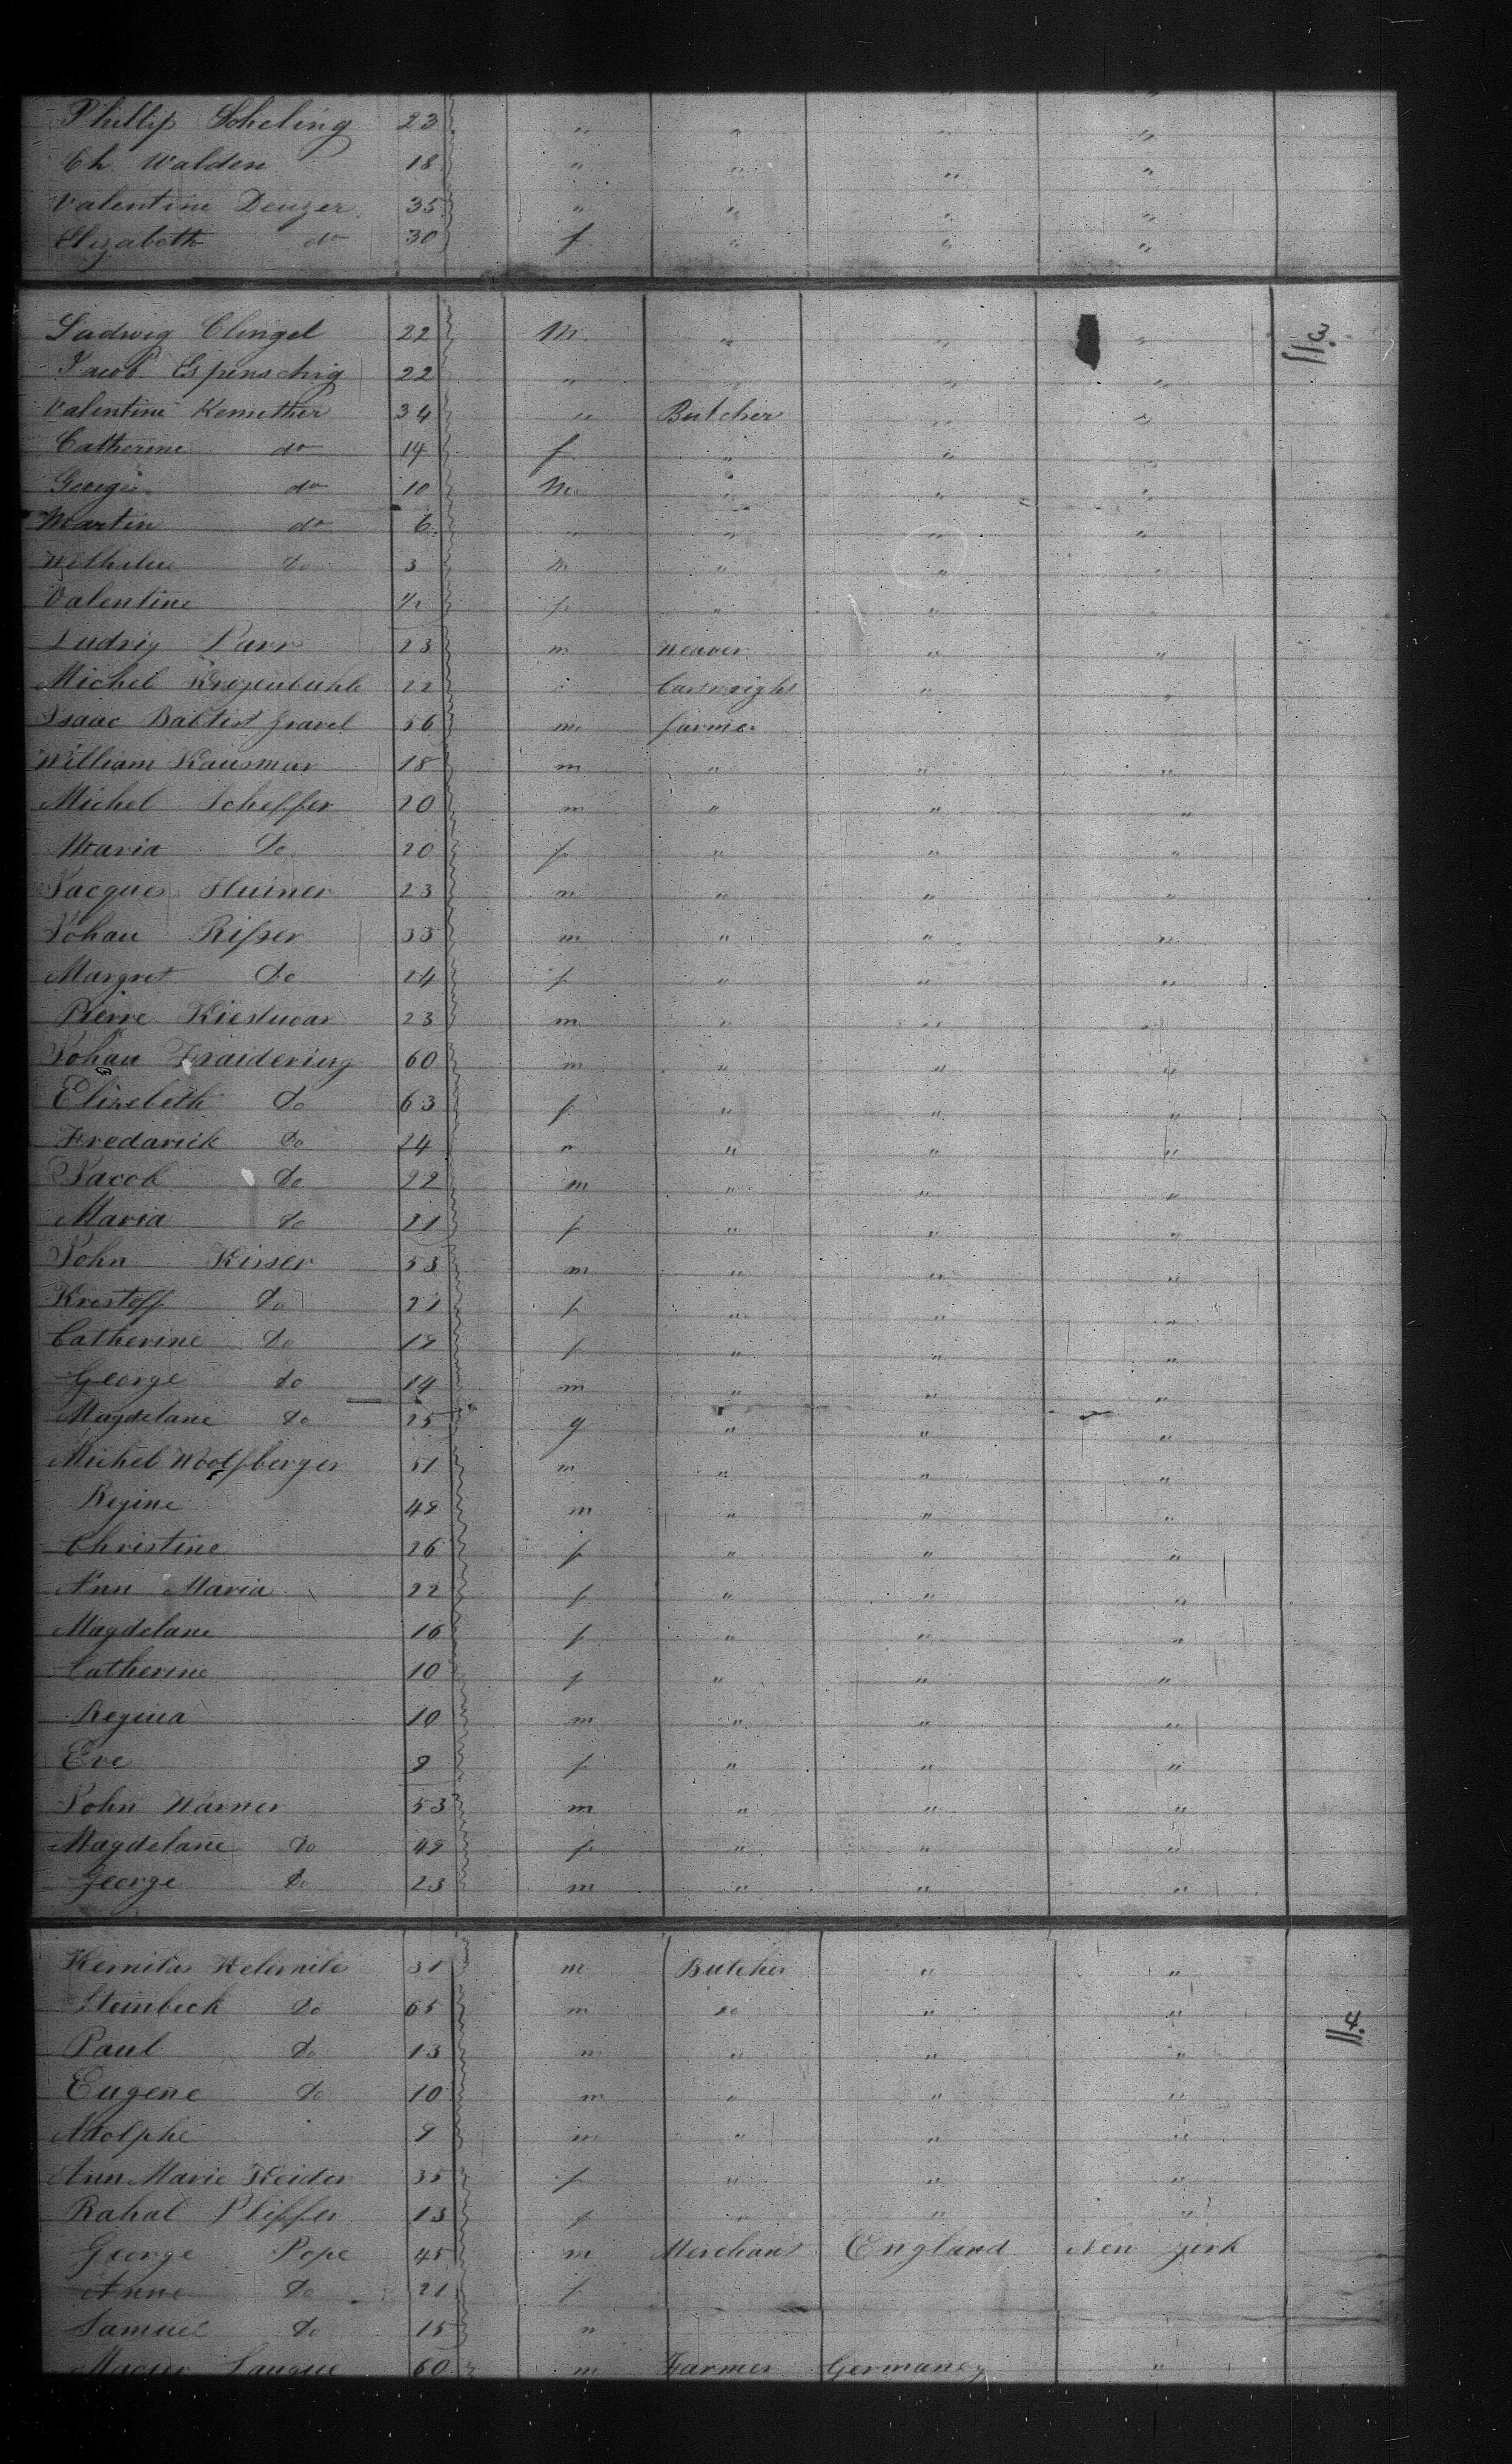 Phillip Scheling 23 " " " "
Ch Walden 18 " " " "
Valentine Deuzer 35 " " " "
Elizabeth do 30 f " " "
Ludwig Clingel 22 M " " "
Jacob Espenschig 22 " " " "
113.
Valentine Kemether 34 " Butcher " "
Catherine do 14 f " " "
George do 10 M " " "
Martin do 6 " " " "
Wilhelm do 3 m " " "
Valentine 1/2 f " " "
Ludwig Parr 23 m Weaver " "
Michel 22 Cartwright " "
Isaac Babtist Gravel 56 m farmer
William Kausmar 18 m " " "
Michel Scheffer 20 m " " "
Maria do 20 f " " "
Jacques Huiner 23 m " " "
Johan Risser 33 m " " "
Margret do 24 f " " "
Pierre Kiestuoar 23 m " " "
Johan Fraidering 60 m " " "
Elizebeth do 63 f " " "
Fredarick do 24 m " " "
Jacob do 22 m " " "
Maria do 21 f " " "
John Kisser 53 m " " "
Krestoff do 21 f " " "
Catherine do 19 f " " "
George do 14 m " " "
Magdelane do 25 f " " "
Michel Woolfberger 51 m " " "
Regine 49 m " " "
Christine 26 f " " "
Ann Maria 22 f " " "
Magdelane 16 f " " "
Catherine 10 f " " "
Regina 10 m " " "
Eve 9 f " " "
John Warner 53 m " " "
Magdelane do 49 f " " "
George do 23 m " " "
31 m Butcher " "
Steinbeck do 65 m do " "
114.
Paul do 13 m " " "
Eugene do 10 m " " "
Adolphe 9 m " " "
Ann Marie Keider 35 f " " "
Rahal Pliffer 13 f " " "
George Pope 45 m Merchant England New york
Anne do 21 f
Samuel do 15 "
Langue 60 m Farmer Germaney "